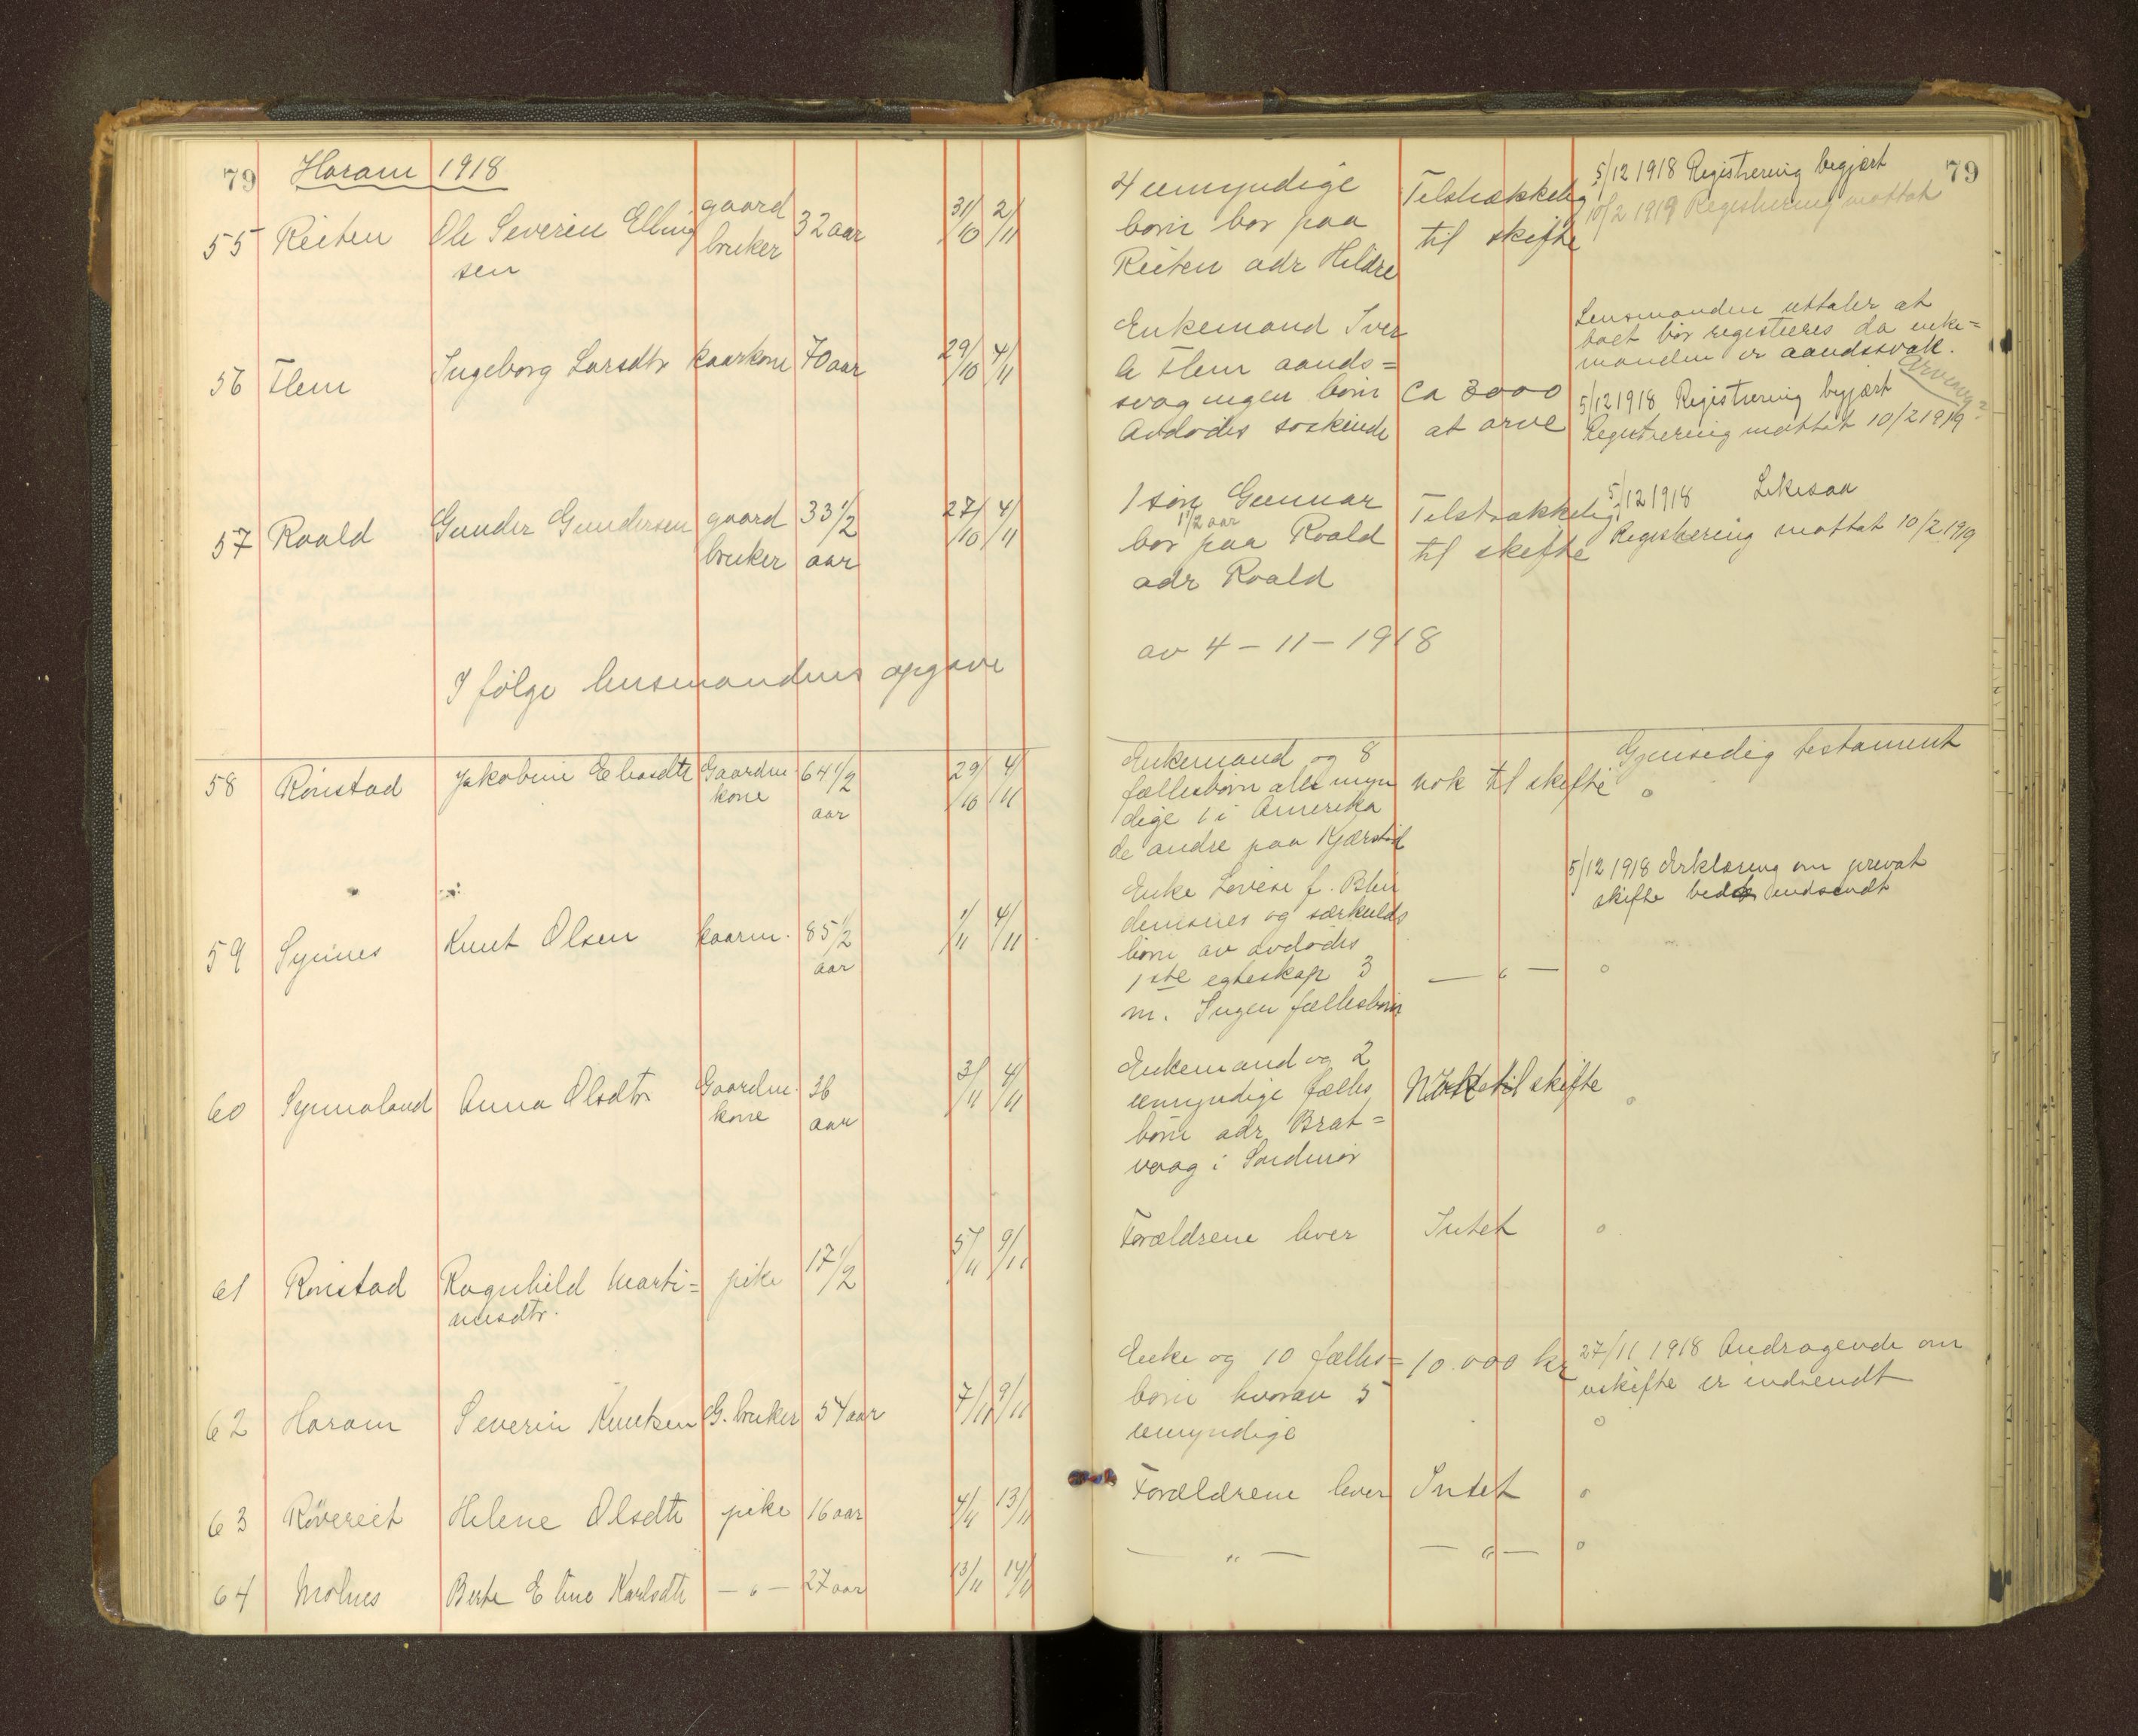 79 Haram 1918
55 Reiten Ole Severin Elling
sen
gaard
bruker
32 aar
31/10 2/11
4 umyndige
børn bor paa
Reiten adr Hildre
Telstrækkelig
til skifte
5/12 1918 Registrering begjært
10/2 1919 Registrering mottat
79
56 Flem Ingeborg Larsdtr kaarkone 70 aar 29/10 4/11
Enkemand Iver
A Flem aands=
svag ingen børn
Avdødes søskende
Ca 3000
at arve
Lensmanden uttaler at
boet bør registreres da enke=
manden er aandssvak.
5/12 1918 Registrering begjært
Registrering mottat 10/2 1919
57 Roald Gunder Gundersen
gaard
bruker
33 1/2
aar
27/10 4/11
1 søn Gunnar
1 1/2 aar
bor paa Roald
adr Roald
Telstrækkelig
til skifte
5/12 1918 Likesaa
Registrering mottat 10/2 1919
I følge lensmandens opgave
av 4-11-1918
58 Rønstad Jakobine Eliasdtr
Gaardm.
kone
64 1/2
aar
29/10 4/11
Enkemand og 8
fællesbørn alle myn
dige 1 i Amerika
de andre paa Kjærstad
nok til skifte
Gjensedig testament
59 Synnes Knut Olsen kaarm. 85 1/2
aar
1/11 4/11
Enke Lovise f. Blin
demsnes og særkulds
børn av avdødes
1ste egteskap 3
m. Ingen fællesbørn
— " —
5/12 1918 Erklæring om privat
skifte bedes indsendt
60 Synnaland Anna Olsdtr
Gaardm.
kone
36
aar
3/11 4/11
Enkemand og 2
umyndige fælles
børn adr Brat=
vaag i Søndmør
til skifte
61 Rønstad Ragnhild Marti=
nusdtr.
pike 17 1/2 5/11 9/11
Forældrene lever Intet
62 Haram Severin Knutsen G. bruker 54 aar 7/11 9/11
Enke og 10 fælles=
børn hvorav 5
umyndige
10.000 kr
27/11 1918 Andragende om
uskifte er indsendt
63 Røvereit Helene Olsdtr pike 16 aar 4/11 13/11
Forældrene lever Intet
64 Molnes Berte Eline Karlsdtr — " — 27 aar 13/11 14/11
— " — — " —